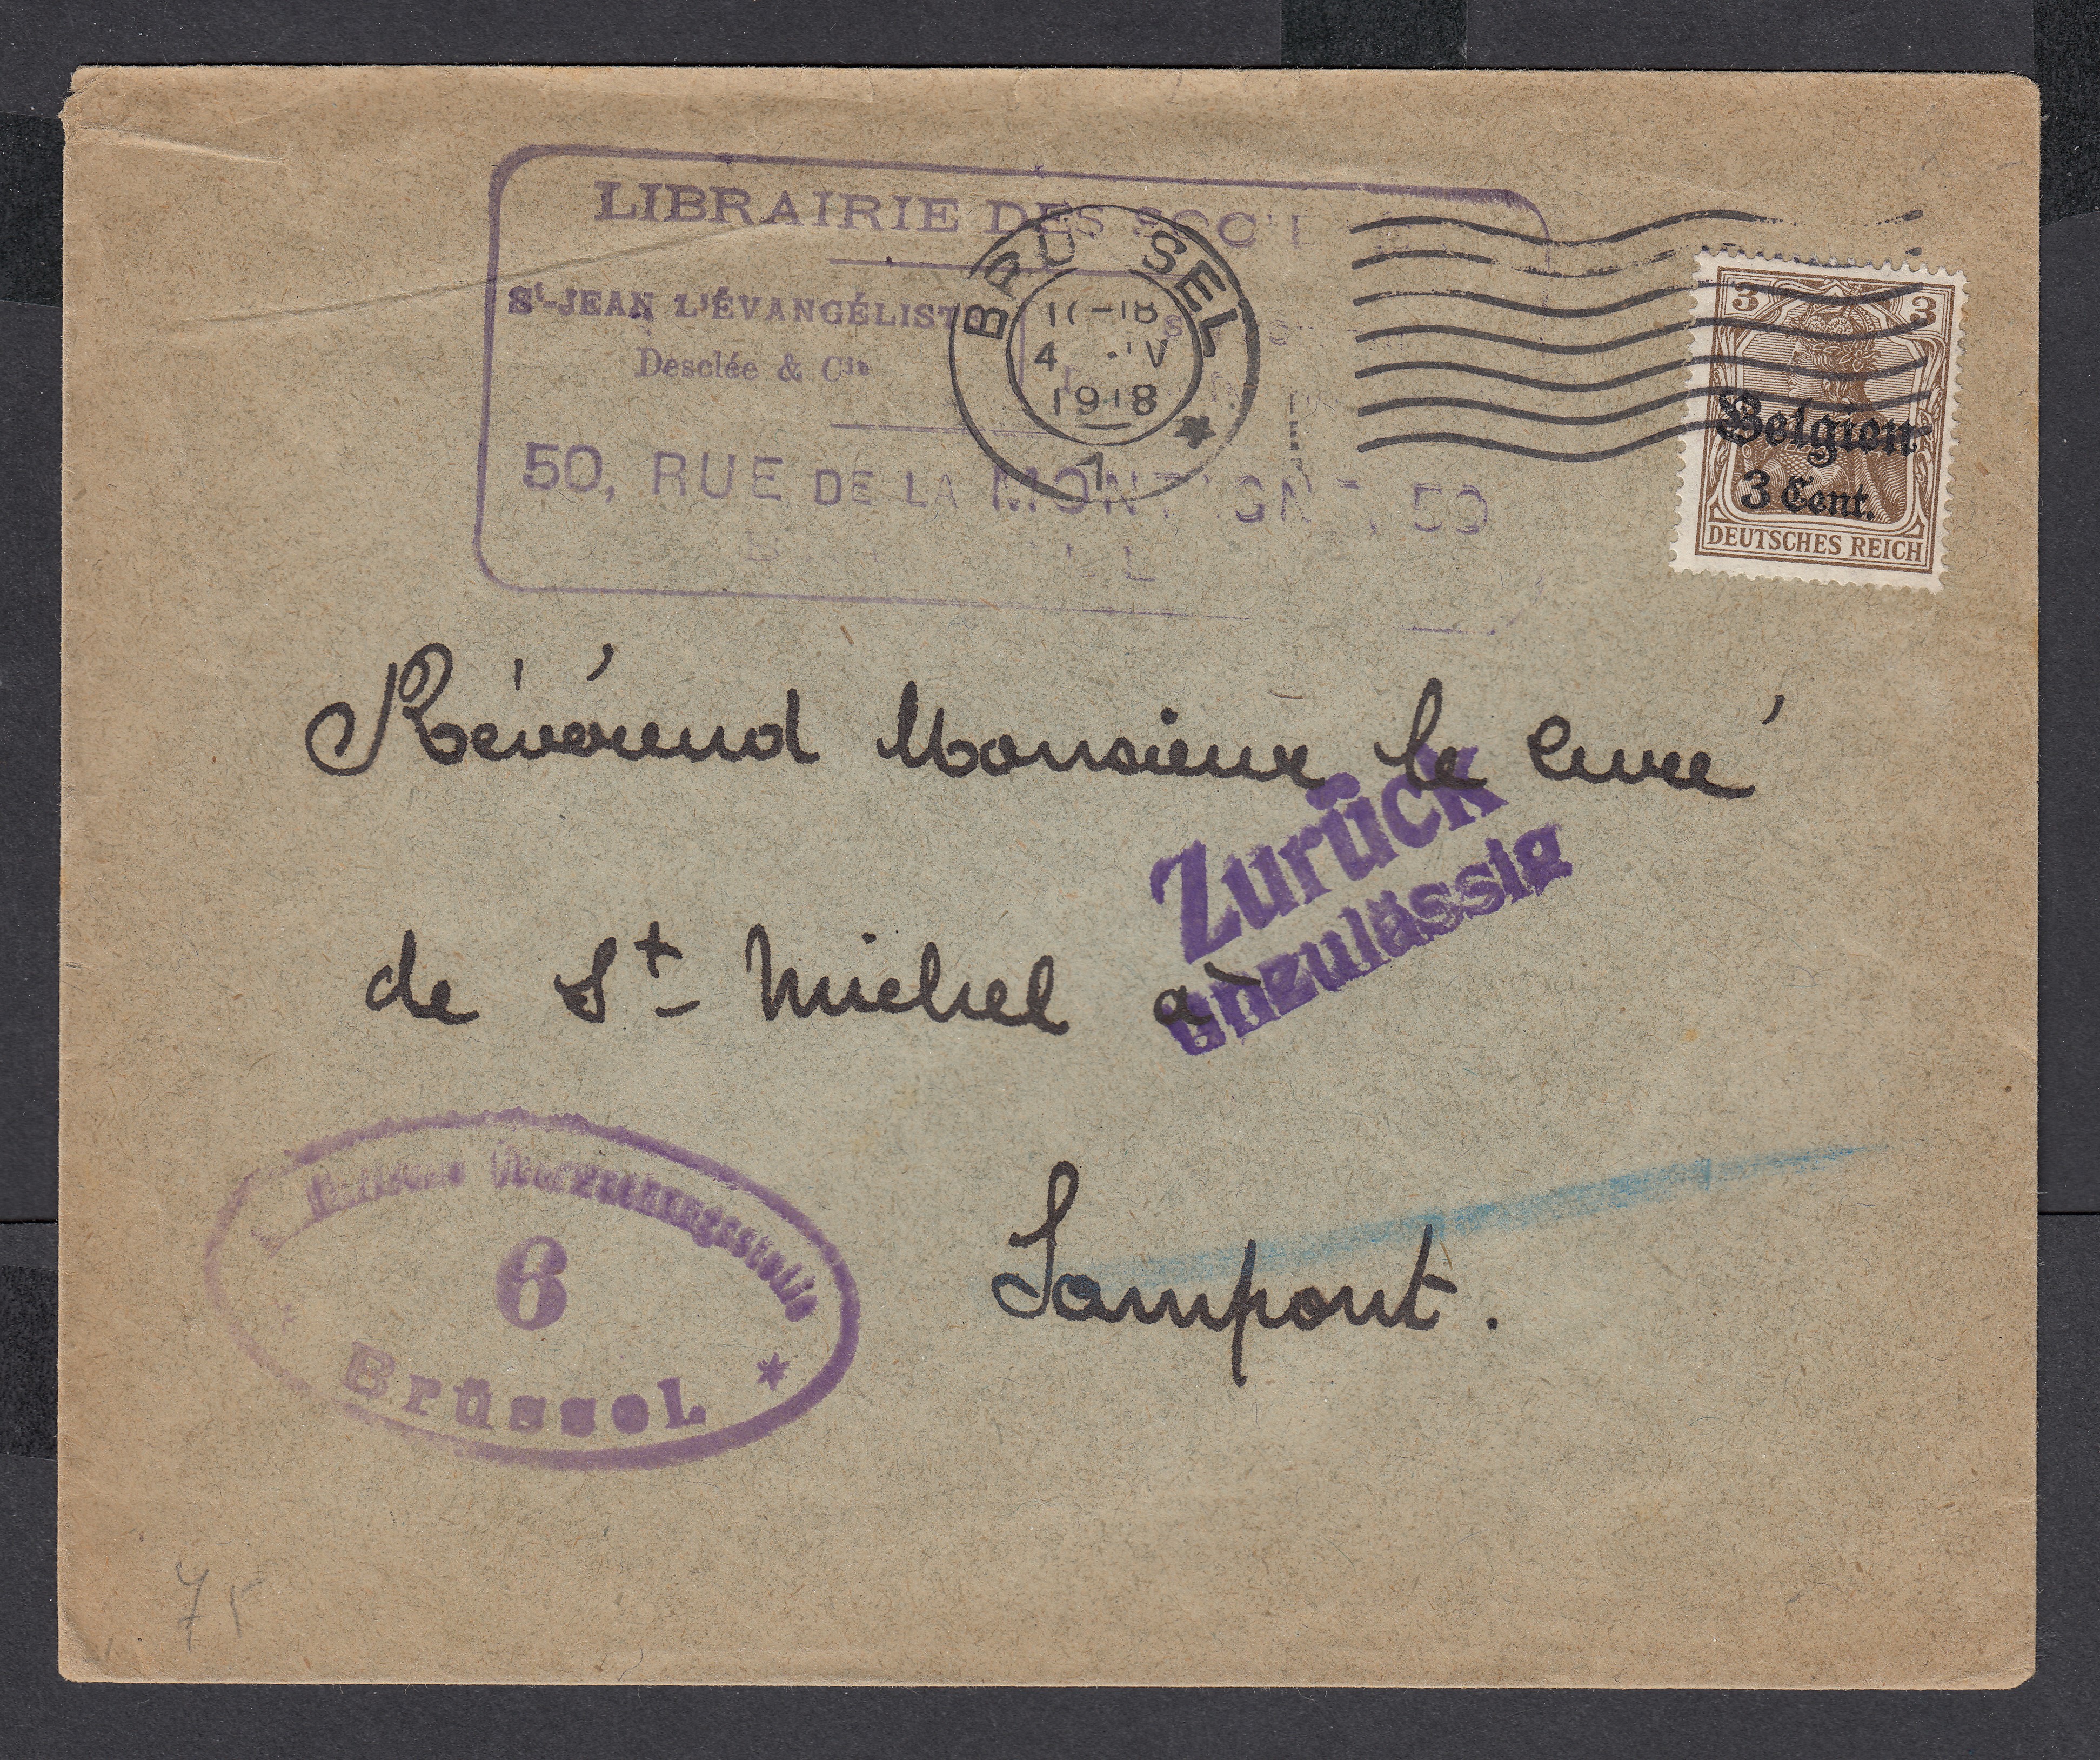 LIBRAIRIE DES
St-JEAN L'ÉVANGÉLISTE
Desclée & Cie
50, RUE DE LA MONTAGNE, 50
BRUSSEL
1918
1
3 3
Belgien
3 Cent.
DEUTSCHES REICH
Révérend Monsieur le Curé
Zurück
unzulässig
de St Michel à
Sampont.
Überwachungsstelle
6
Brüssel
75